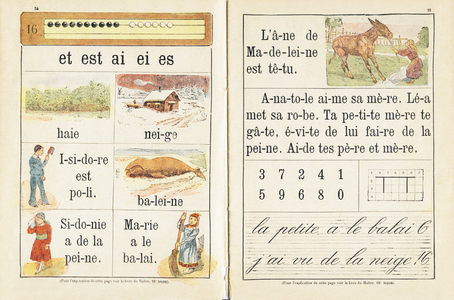 24
16
et est ai ei es
haie
nei-ge
I-si-do-re
est
po-li.
ba-lei-ne
Si-do-nie
a de la
pei-ne.
Ma-rie
a le
ba-lai.
(Pour l'explication de cette page voir le livre du Maître, 16e leçon).
25
L'â-ne de
Ma-de-lei-ne
est tê-tu.
A-na-to-le ai-me sa mè-re. Lé-a
met sa ro-be. Ta pe-ti-te mè-re te
gâ-te, é-vi-te de lui fai-re de la
pei-ne. Ai-de tes père et mè-re.
3 7 2 4 1
5 9 6 8 0
la petite a le balai 6
j'ai vu de la neige 16
(Pour l'explication de cette page voir le livre du Maître, 16e leçon).